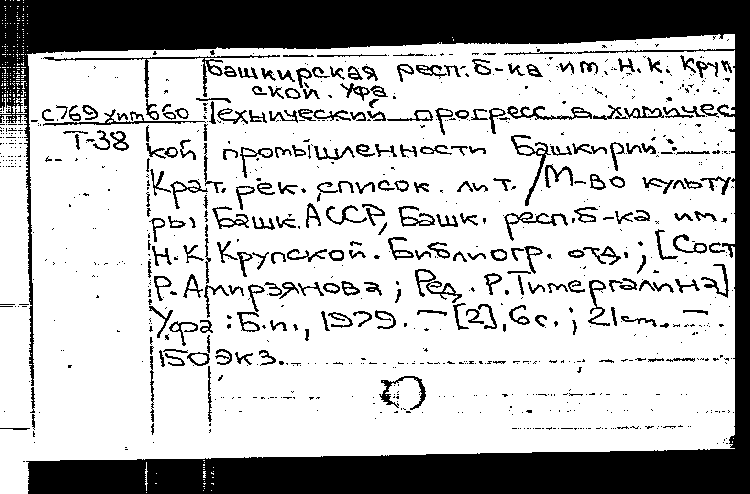 Башкирская респ. б-ка им. Н.К. Круп-
ской. Уфа.
С769хим660 Технический прогресс в химичес-
Т-38
кой промышленности Башкирии:
Крат. рек. список лит. / М-во культу-
ры Башк. АССР, Башк. респ. б-ка им.
Н.К. Крупской. Библиогр. отд.; [Сост
Р. Амирзянова; Ред. Р. Тимергалина]
Уфа: Б.и., 1979. — [2], 6 с.; 21 см. —
150 экз.